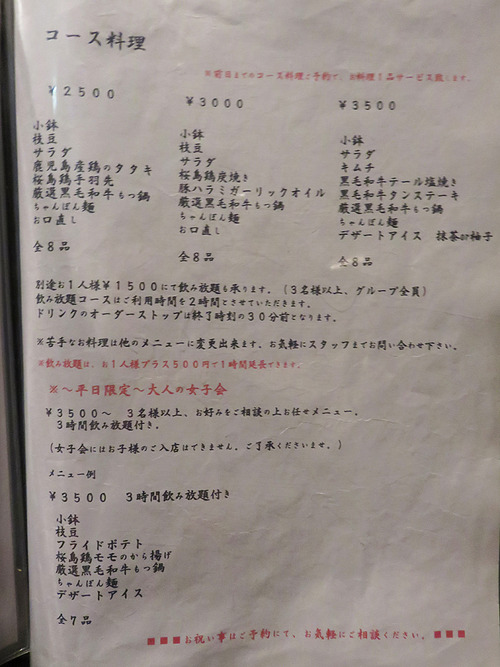 コース料理
※前日までのコース料理ご予約で、お料理１品サービス致します。
￥２５００
小鉢
枝豆
サラダ
鹿児島産鶏のタタキ
桜島鶏手羽先
厳選黒毛和牛もつ鍋
ちゃんぽん麺
お口直し
全８品
￥３０００
小鉢
枝豆
サラダ
桜島鶏炭焼き
豚ハラミガーリックオイル
厳選黒毛和牛もつ鍋
ちゃんぽん麺
お口直し
全８品
￥３５００
小鉢
サラダ
キムチ
黒毛和牛テール塩焼き
黒毛和牛タンステーキ
厳選黒毛和牛もつ鍋
ちゃんぽん麺
デザートアイス　抹茶or柚子
全８品
別途お１人様￥１５００にて飲み放題も承ります。（３名様以上、グループ全員）
飲み放題コースはご利用時間を２時間とさせていただきます。
ドリンクのオーダーストップは終了時刻の３０分前となります。
※苦手なお料理は他のメニューに変更出来ます。お気軽にスタッフまでお問い合わせ下さい。
※飲み放題は、お１人様プラス５００円で１時間延長できます。
※～平日限定～大人の女子会
￥３５００～　３名様以上、お好みをご相談の上お任せメニュー。
３時間飲み放題付き。
（女子会にはお子様のご入店はできません。ご了承くださいませ。）
メニュー例
￥３５００　３時間飲み放題付き
小鉢
枝豆
フライドポテト
桜島鶏モモのから揚げ
厳選黒毛和牛もつ鍋
ちゃんぽん麺
デザートアイス
全７品
■■■お祝い事はご予約にて、お気軽にご相談ください。■■■